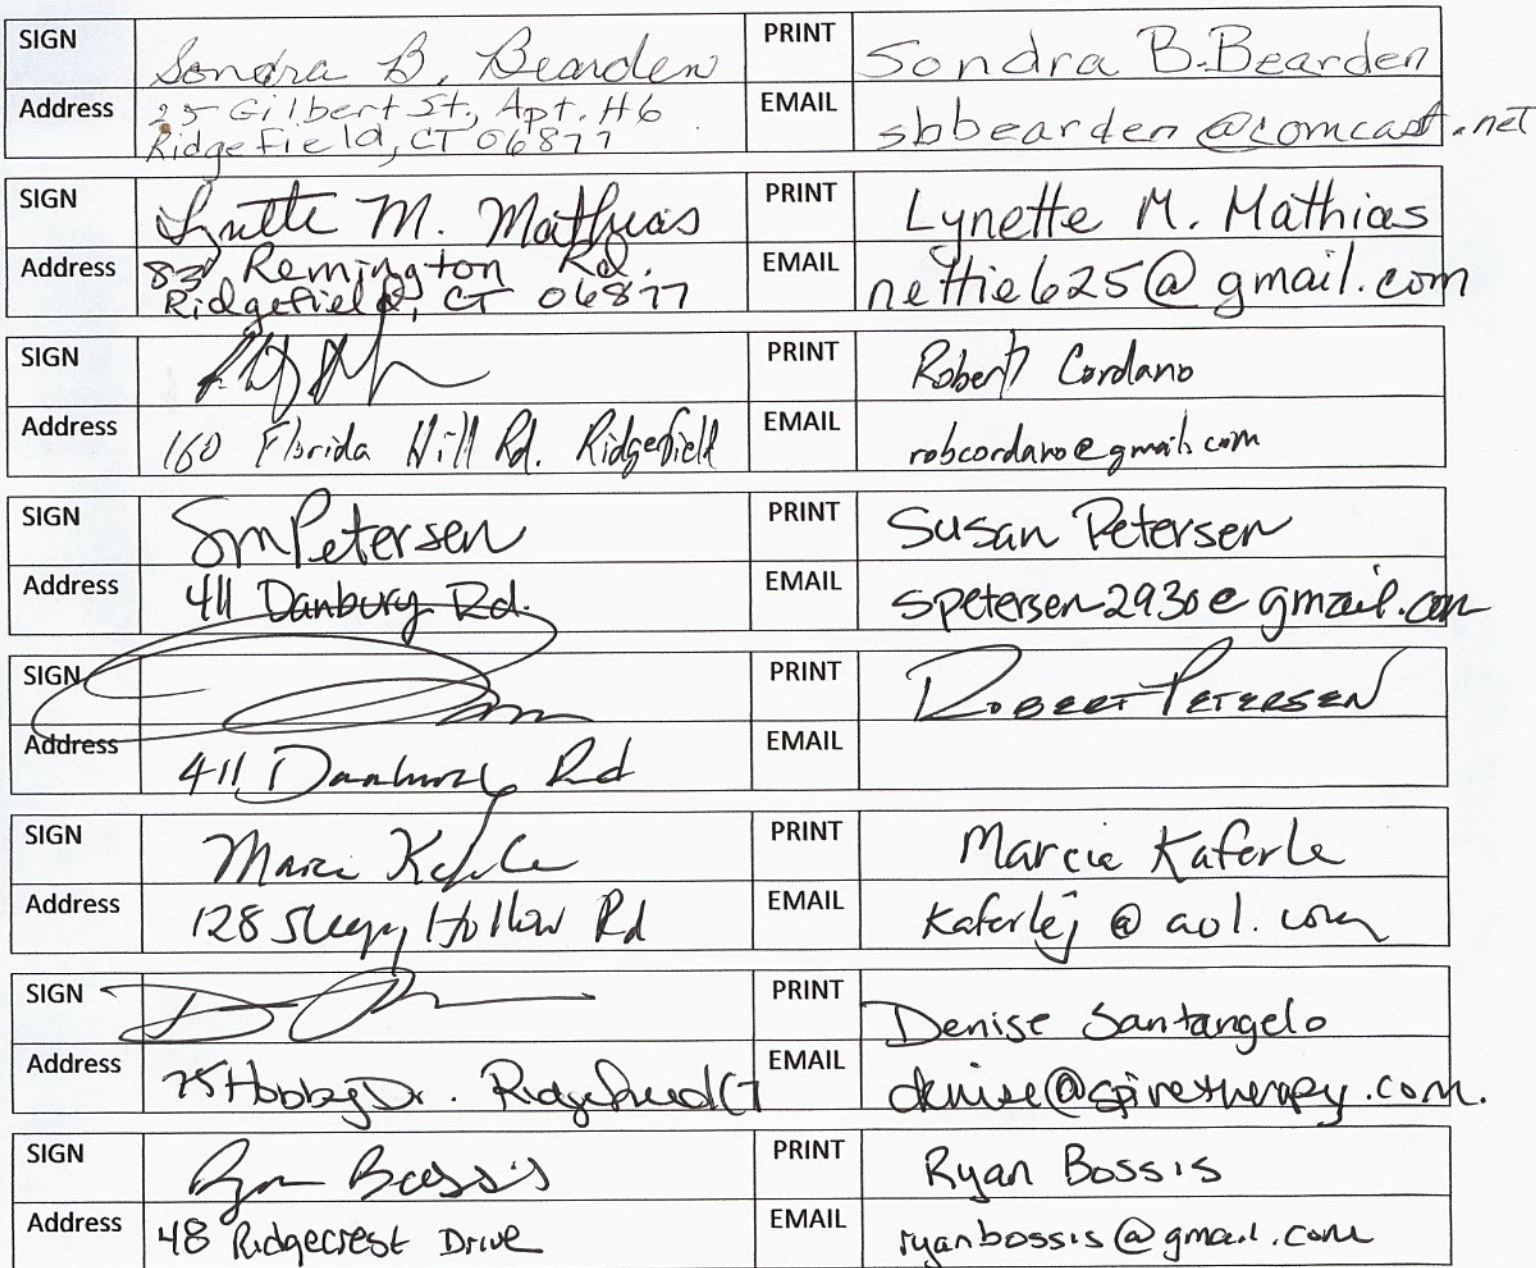 SIGN Sondra B. Bearden PRINT Sondra B. Bearden
Address 25 Gilbert St., Apt. H6 EMAIL sbbearden@comcast.net
Ridgefield, CT 06877
SIGN Lynette M. Mathias PRINT Lynette M. Mathias
Address 83 Remington Rd. EMAIL nettie625@gmail.com
Ridgefield, CT 06877
SIGN PRINT Robert Cordano
Address 160 Florida Hill Rd. Ridgefield EMAIL robcordano@gmail.com
SIGN SM Petersen PRINT Susan Petersen
Address 411 Danbury Rd. EMAIL spetersen2930@gmail.com
SIGN PRINT ROBERT PETERSEN
Address 411 Danbury Rd EMAIL
SIGN Marcie Kaferle PRINT Marcie Kaferle
Address 128 Sleepy Hollow Rd EMAIL Kaferlej@aol.com
SIGN PRINT Denise Santangelo
Address 75 Hobby Dr. Ridgefield CT EMAIL denise@spiretherapy.com.
SIGN Ryan Bossis PRINT Ryan Bossis
Address 48 Ridgecrest Drive EMAIL ryanbossis@gmail.com